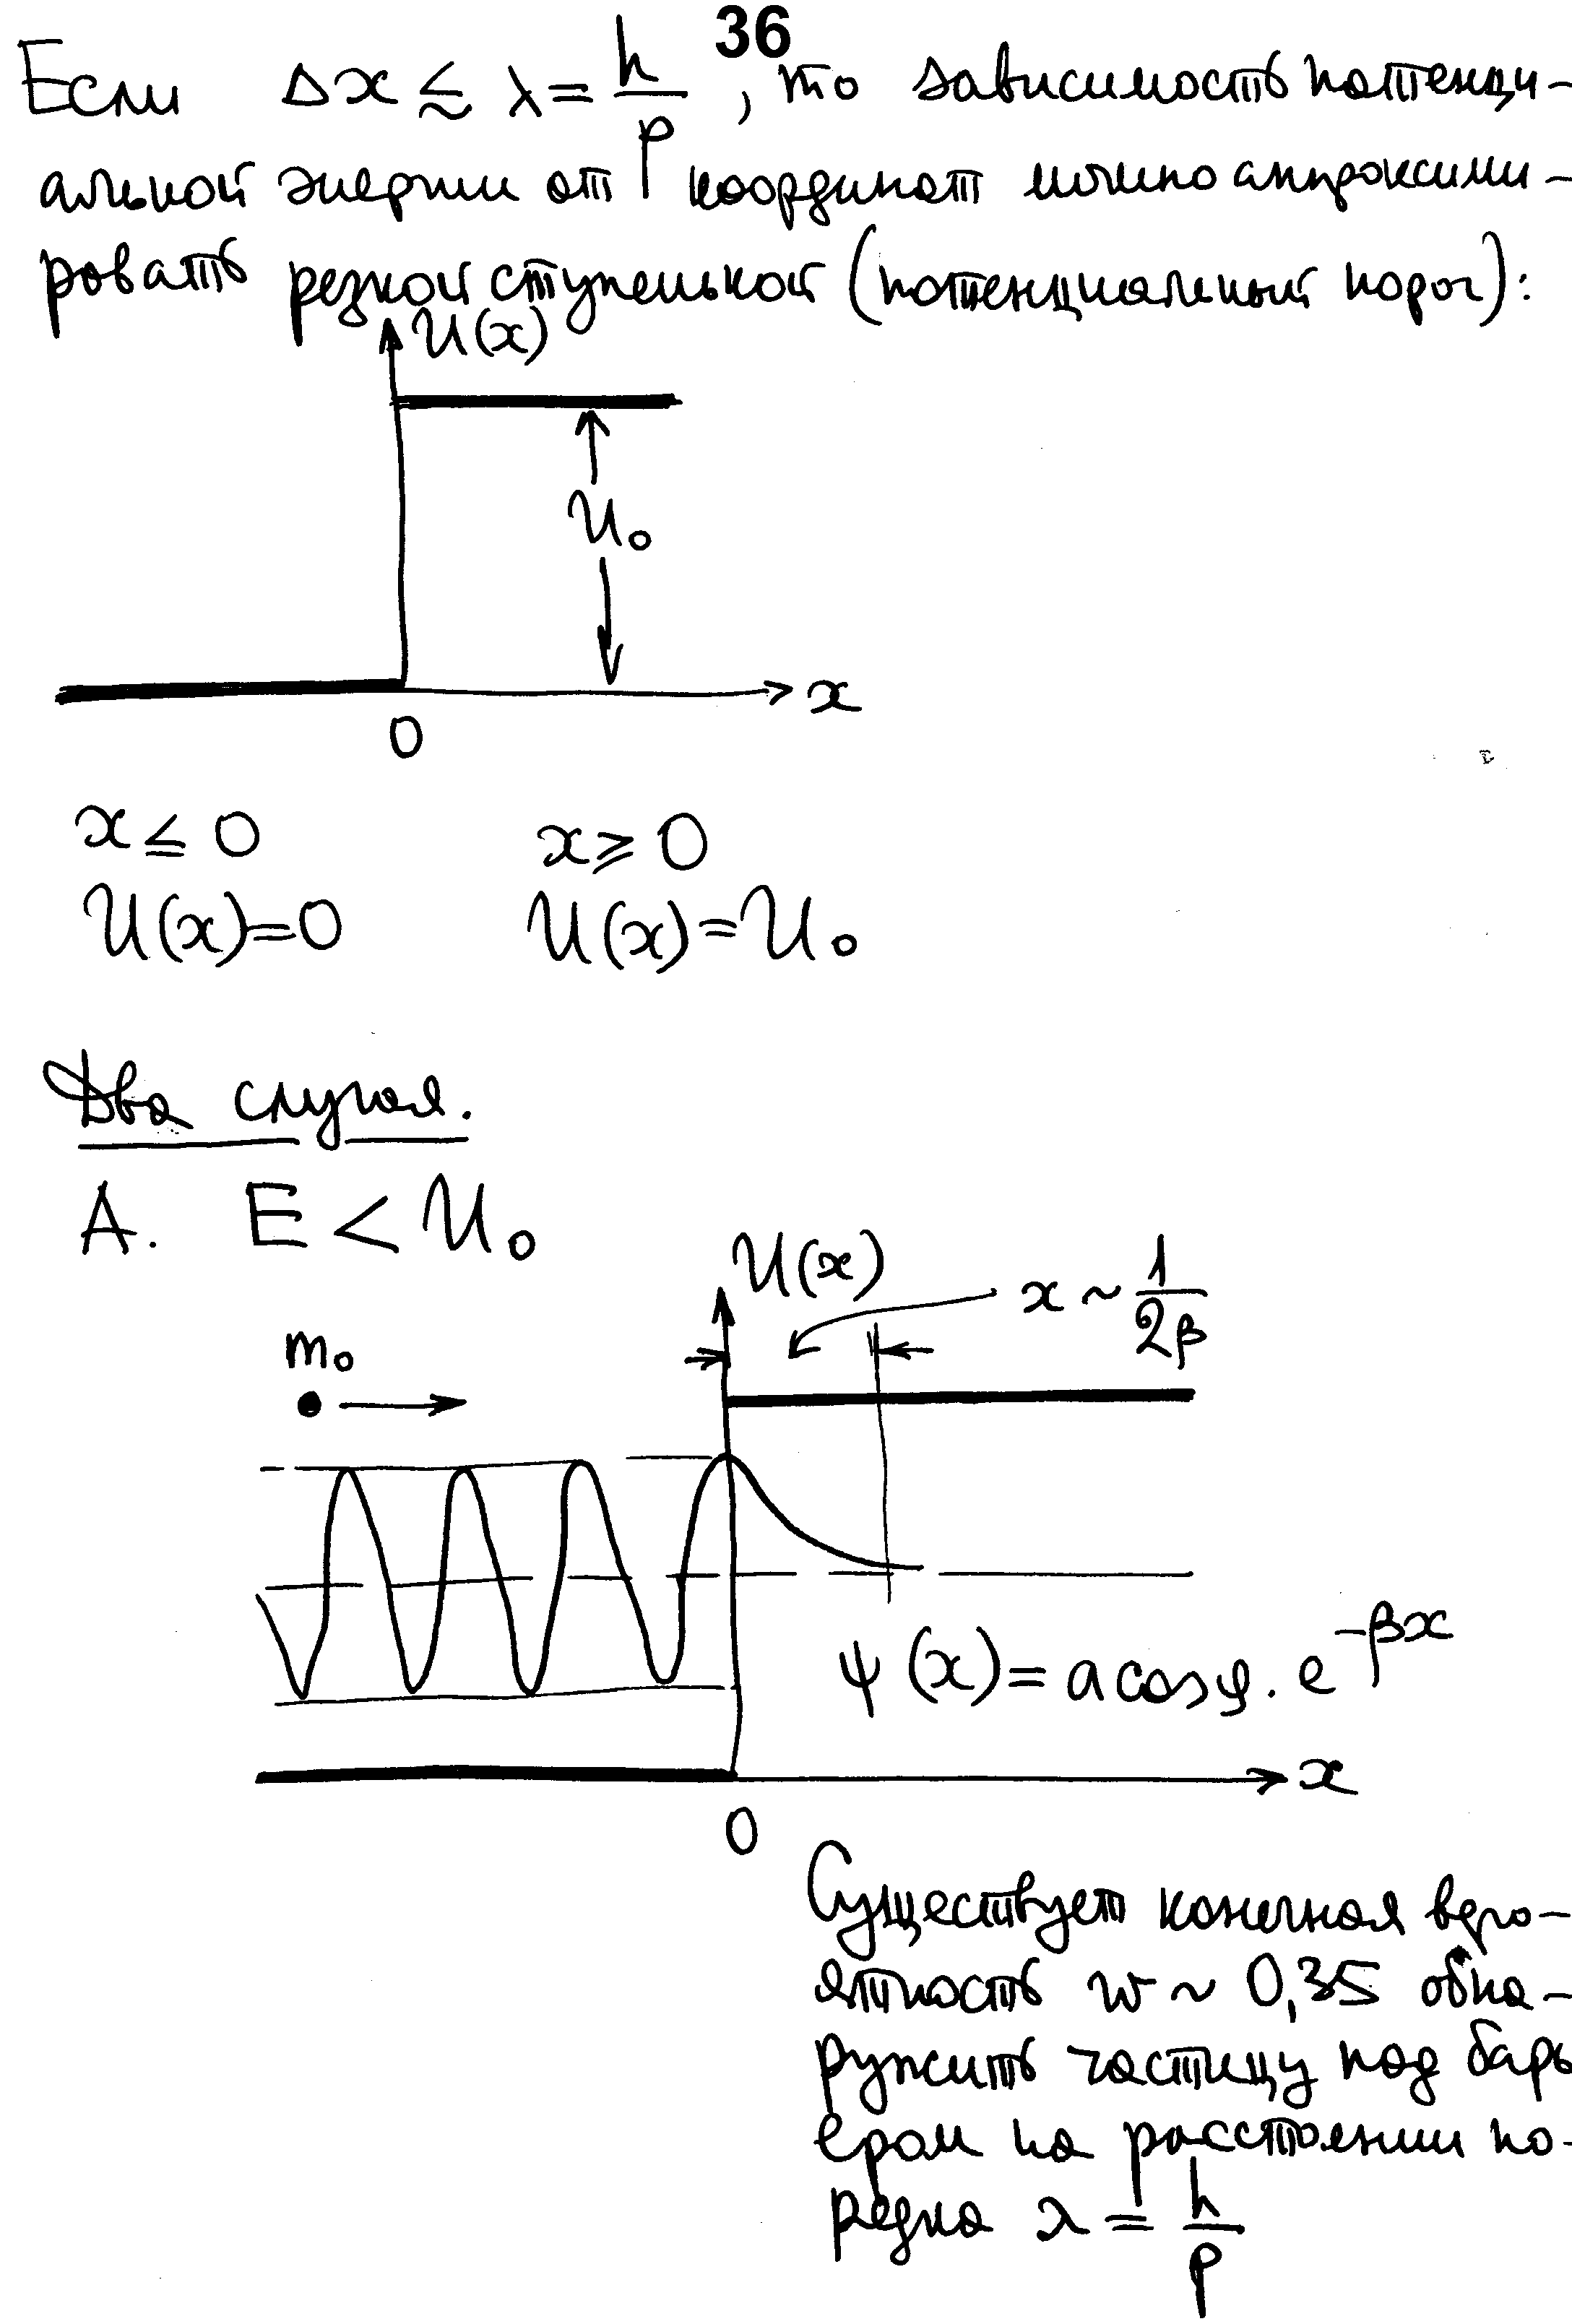 36
Если Δx ≲ λ = h/p, то зависимость потенци-
альной энергии от координат можно аппроксими-
ровать резкой ступенькой (потенциальный порог):
U(x)
U₀
x
0
x ≤ 0 x ≥ 0
U(x)=0 U(x)=U₀
Два случая.
А. E < U₀
U(x) x ~ 1/2β
m₀
ψ(x) = a cosφ · e^(-βx)
x
0
Существует конечная веро-
ятность w ~ 0,35 обна-
ружить частицу под барь
ером на расстоянии по-
рядка λ = h/p